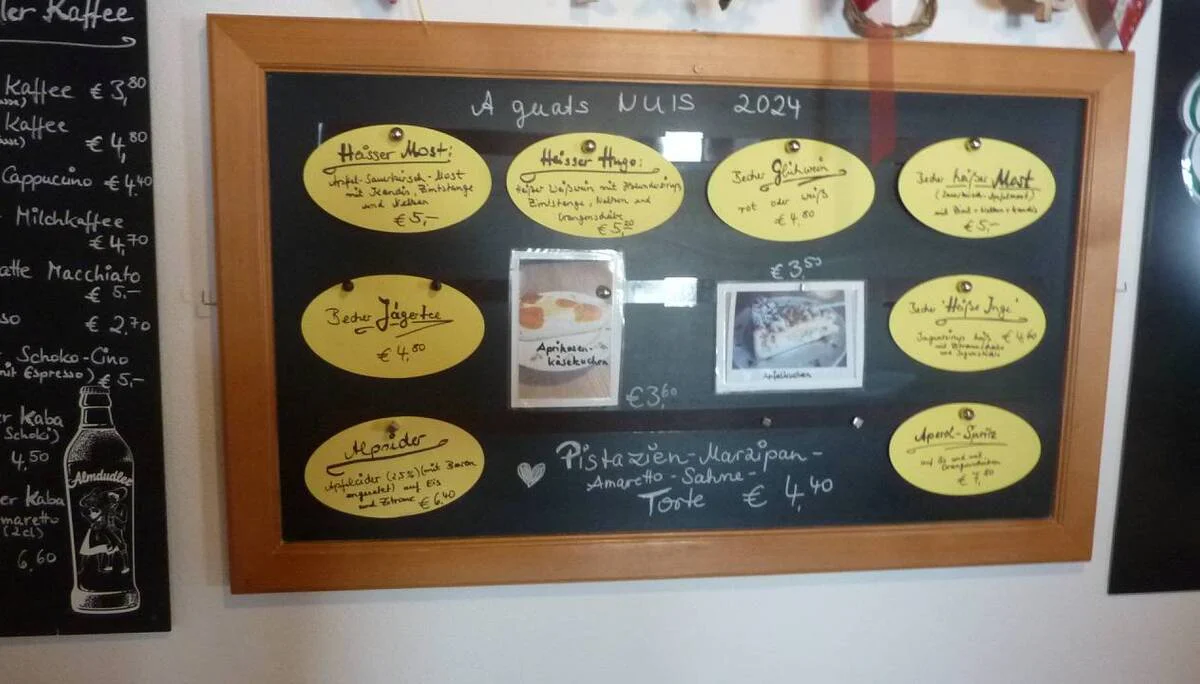 ler Kaffee
Kaffee € 3,80
Kaffee
€ 4,80
Cappuccino € 4,40
Milchkaffee
€ 4,70
atte Macchiato
€ 5,-
so € 2,70
Schoko-Cino
mit Espresso) € 5,-
er Kaba
Schoki)
4,50
er Kaba
maretto
(2cl)
6,60
Almdudler
A guats NUIS 2024
Heisser Most:
Apfel-Sauerkirsch-Most
mit Kandis, Zimtstange
und Nelken
€ 5,-
Heisser Hugo:
heißer Weißwein mit
Zimtstange, Nelken und
Orangenscheibe
€ 5,20
Becher Glühwein
rot oder weiß
€ 4,80
Becher heißer Most
(Sauerkirsch-Apfelmost)
mit Zimt-Nelken+Kandis
€ 5,-
Becher Jägertee
€ 4,80
Aprikosen-
käsekuchen
€ 3,60
€ 3,50
Apfelkuchen
Becher "Heiße Inge"
€ 4,60
Alpsider
Apfelcider (2,5%) (mit Beeren
angesetzt) auf Eis
und Zitrone € 6,40
Pistazien-Marzipan-
Amaretto-Sahne-
Torte € 4,40
Aperol-Spritz
auf Eis und mit
Orangenscheiben
€ 7,80